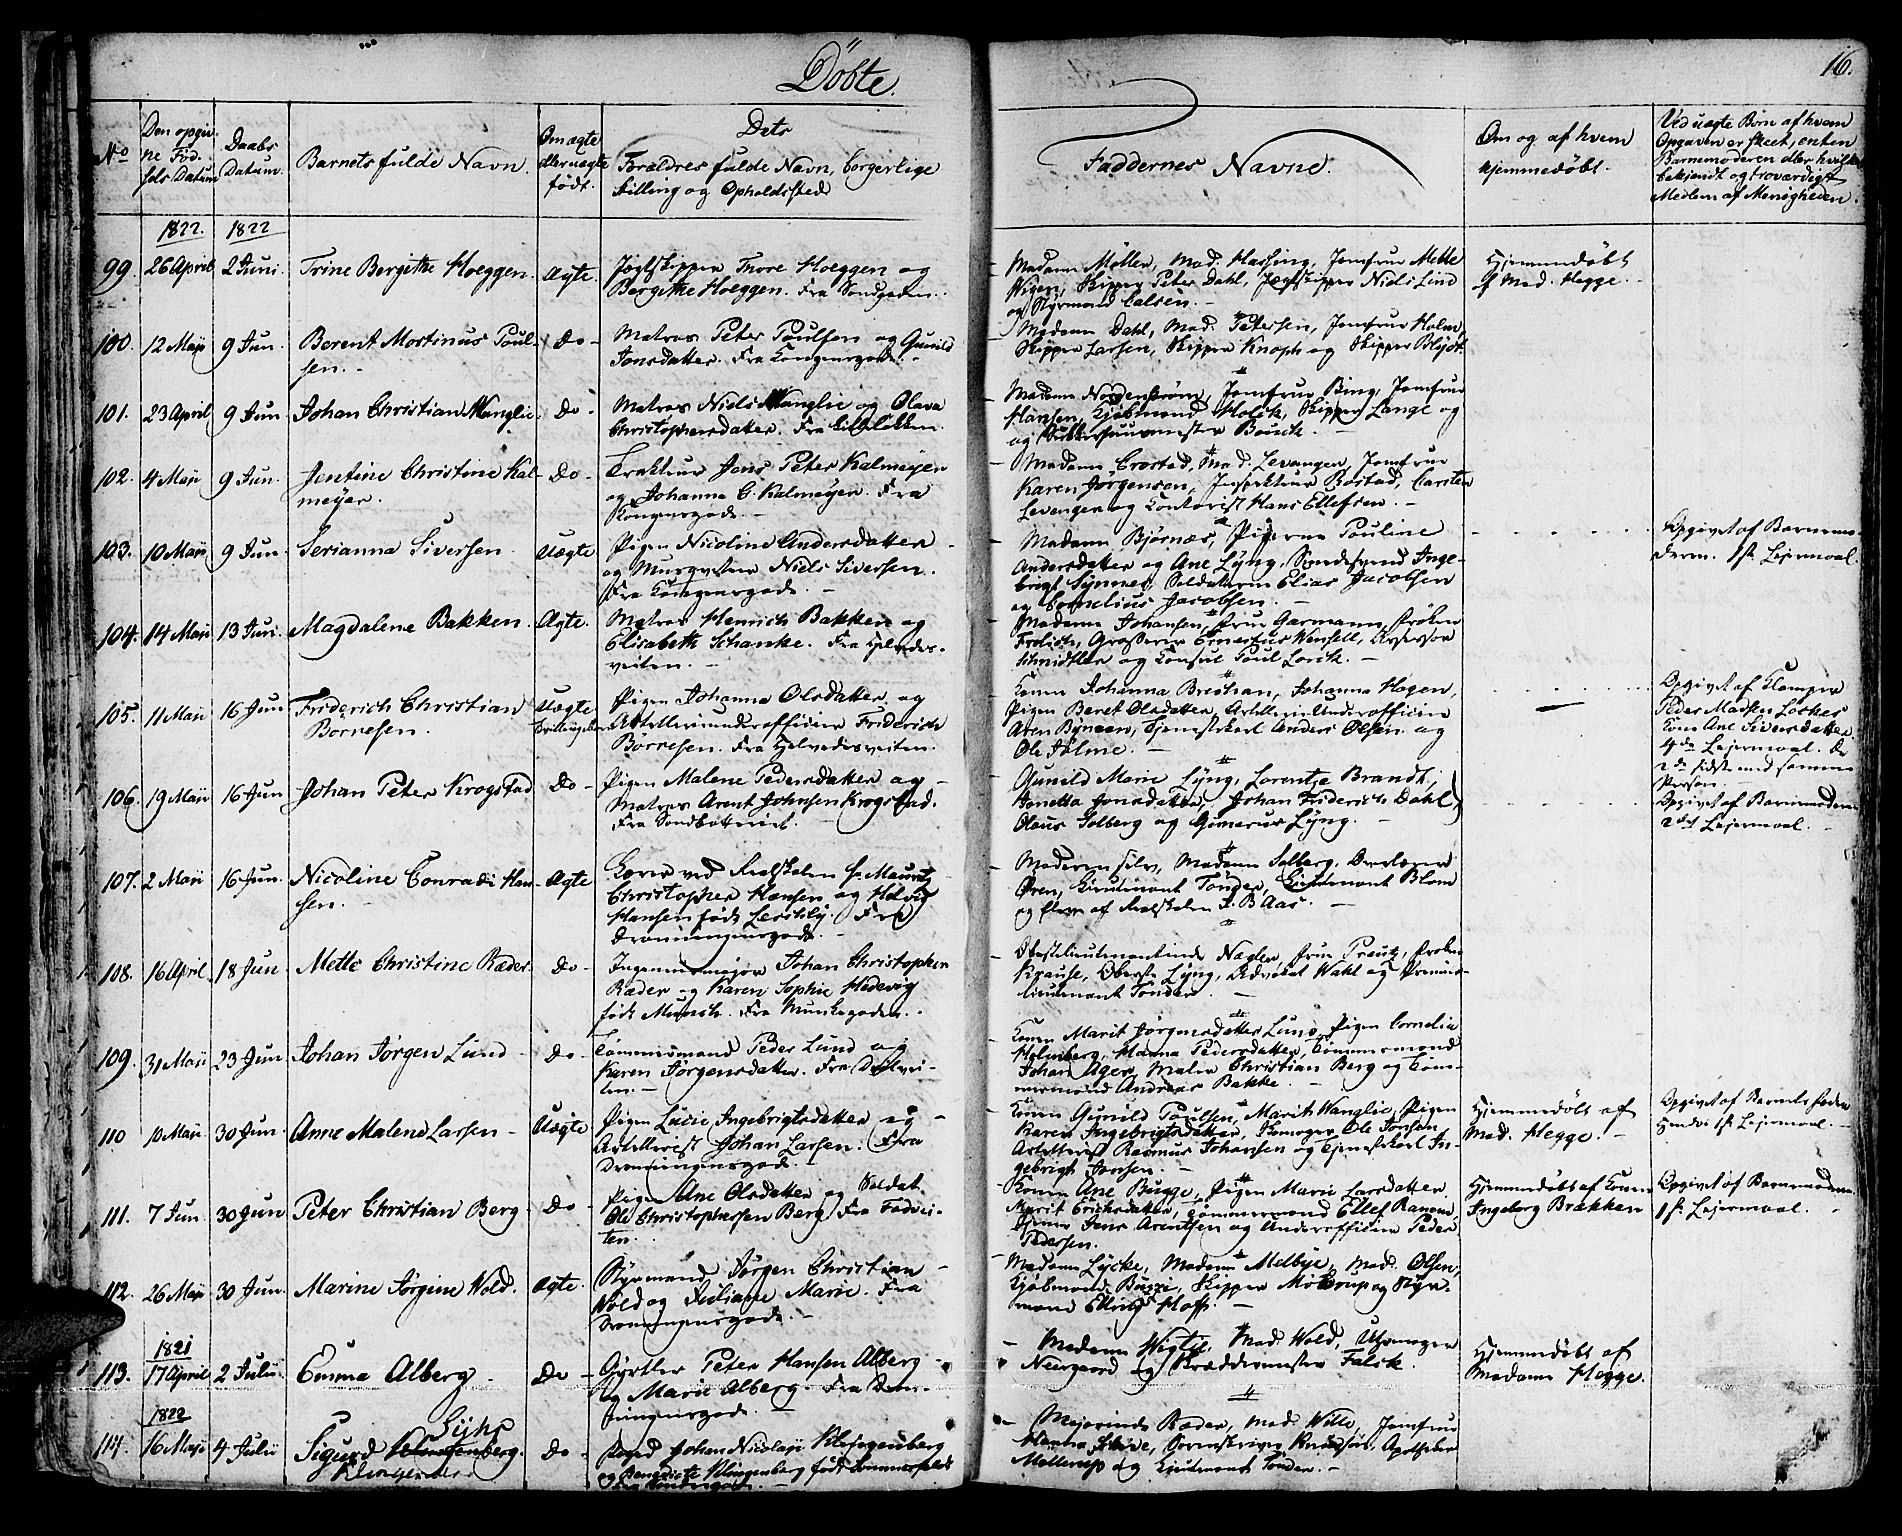 Döbte.
16.
No
Den opgiv-
ne Föd-
sels Datum
Daabs
Datum.
Barnets fulde Navn.
Om ægte
eller uægte
født.
Dets
Forældres fulde Navn, borgerlige
Stilling og Opholdssted
Faddernes Navne.
Om og af hvem
hjemmedøbt.
Ved uægte Børn af hvem
Opgaven er skeet, enten
Barnemoderen eller hvilket
bekjendt og troværdigt
Medlem af Menigheden.
1822. 1822
99. 26 April 2 Juni. Trine Bergithe Hoeggen. Ægte.
Jagtskipper Thore Hoeggen og
Bergithe Hoeggen. Fra Sandgaden.
Madame Møller, Mad. Hassing, Jomfrue Mette
Wigen, Skipper Peter Dahl, Jagtskipper Niels Lind
og Styrmand Calsen.
Hjemmedøbt
af Mad. Hegge.
100. 12 Maji 9 Jun. Berent Mortinus Poul-
sen. Do
Matros Peter Poulsen og Gunild
Jonsdatter. Fra Kongensgade.
Madame Dahl, Mad. Petersen, Jomfrue Holm,
Skipper Larsen, Skipper Knoph og Skipper Blydt.
101. 23 April 9 Jun Johan Christian Wanglie. Do
Matros Niels Wanglie og Olava
Christophersdatter. Fra Lilleløkken.
Hansen, Kjøbmand Holck, Skipper Lange og
102. 4 Maji 9 Jun. Jentine Christine Kal-
meyer. Do
Trakteur Jens Peter Kalmeyer
og Johanna C. Kalmeyer. Fra
Kongensgade.
Madame Crostad, Mad. Levanger, Jomfrue
Karen Jørgensen, Inspekteur Bostad, Carsten
Levanger og Kontorist Hans Ellefsen.
103. 10 Maji 9 Jun. Serianna Siversen. Uægte
Pigen Nicoline Andersdatter
og Muursvend Niels Siversen.
Fra Kongensgade.
Madame Bjørnæs, Pigerne Pouline
Andersdatter og Ane Lyng, Svendesvend Inge-
brigt Synnes, Soldaterne Elias Jacobsen
og Cornelius Jacobsen.
Opgivet af Barnemo-
deren. 1ste Lejermaal.
104. 14 Maji 13 Jun. Magdalene Bakken. Ægte.
Matros Henrich Bakken og
Elisabeth Schanke. Fra Helvedes-
veiten.
Madame Johansen, Frue Garmann, Frøken
Frølich, Grosserer Ernestus Wensell, Assessor
Schmidtler og Consul Poul Lorck.
105. 11 Maji 16 Jun Friderich Christian
Børnesen. Uægte
Pigen Johanna Olsdatter og
Artelleriunderofficier Friderich
Børnesen. Fra Helvedesveiten.
Konen Johanna Breshan, Johanna Hagen,
Pigen Beret Olsdatter, Artelleri-Underofficier
Aren Byneen, Tjenestekarl Anders Olsen og
Ole Holme.
Opgivet af Klamper
Peder Madsen Løckes
Kone Ane Siversdatter
4de Lejermaal. De
2de sidste med samme
Person.
106. 19 Maji 16 Jun Johan Peter Krogstad Do
Pigen Malene Pedersdatter og
Matros Arent Johnsen Krogstad.
Fra Sandbatteriet.
Gunild Marie Lyng, Lorentze Brandt,
Jonetta Jonsdatter, Johan Friderich Dahl,
Olaus Solberg og Gunerus Lyng.
Opgivet af Barnemoderen
2det Lejermaal.
107. 2 Maji 16 Jun. Nicoline Conradi Han-
sen. Ægte
Lærer ved Realskolen Hr. Mauritz
Christopher Hansen og Helvig
Hansen født Leschly. Fra
Dronningensgade.
Moderen selv, Madame Solberg, Overlærer
Øren, Lieutenant Tønder, Lieutenant Blom
og Elev af Realskolen J. B. Aas.
108. 16 April. 18 Jun. Mette Christine Ræder. Do
Ingenieurmajor Johan Christopher
Ræder og Karen Sophie Hedevig
født Munch. Fra Munkegaden.
Oberstlieutenantinde Næsler, Frue Preutz, Frøken
Krause, Oberst Lyng, Advokat Wahl og Premier-
lieutenant Tønder.
109. 31 Maji 23 Jun Johan Jørgen Lund Do
Tømmermand Peder Lund og
Karen Jørgensdatter. Fra Duetvei-
ten.
Konen Marit Jørgensdatter Lund, Pigen Cornelia
Holmberg, Hanna Pedersdatter, Tømmermand
Johan Ager, Maler Christian Berg og Tøm-
mermand Andreas Bakke.
110 10 Maji 30 Jun. Anne Malene Larsen Uægte
Pigen Lucie Ingebrigtsdatter og
Artellerist Johan Larsen. Fra
Dronningensgade.
Konen Gunild Poulsen, Marith Wanglie, Pigen
Karen Ingebrigtsdatter, Skomager Ole Jonsen
Artellerist Rasmus Johansen og Tjenestekarl In-
gebrigt Jonsen.
Hjemmedøbt af
Mad. Hegge.
Opgivet af Barnets Fader
Hendes 1ste Lejermaal.
111. 7 Jun 30 Jun Peter Christian Berg Do
Pigen Ane Olsdatter og Soldat
Ole Christophersen Berg. Fra Fadvei-
ten.
Konen Ane Bugge, Pigen Marie Larsdatter
Marit Erichsdatter, Tømmermand Ellef Ranem
Jens Arentsen og Underofficier Peder
Pedersen.
Hjemmedøbt af Konen
Ingeborg Brækken
Opgivet af Barnemoderen.
1ste Lejermaal.
112. 26 Maji 30 Jun. Marine Jørgine Wold. Ægte.
Styrmand Jørgen Christian
Wold og Juliane Marie. Fra
Dronningensgade.
Madame Lycke, Madame Melbye, Mad. Olsen,
Kjøbmand Buzzi, Skipper Møllerup og Styr-
mand Elling Hoff.
1821
113. 17 April 2 Julii Emma Alberg. Do
Gjørtler Peter Hansen Alberg
og Marie Alberg. Fra Dron-
ningensgade.
Madame Wigtil, Mad. Wold, Uhrmager
Neergaard og Skræddermester Falck.
Hjemmedøbt af
Madame Hegge.
1822
114. 16 Maji 4 Julii Sigurd Lycke
Klingenberg. Do
Johan Nicolaji Klingenberg
og Benedicte Klingenberg født Sommerfeldt
Fra Søndregade.
Majorinde Ræder, Mad. Wille, Jomfrue
Møllerup og Lieutenant Tønder.